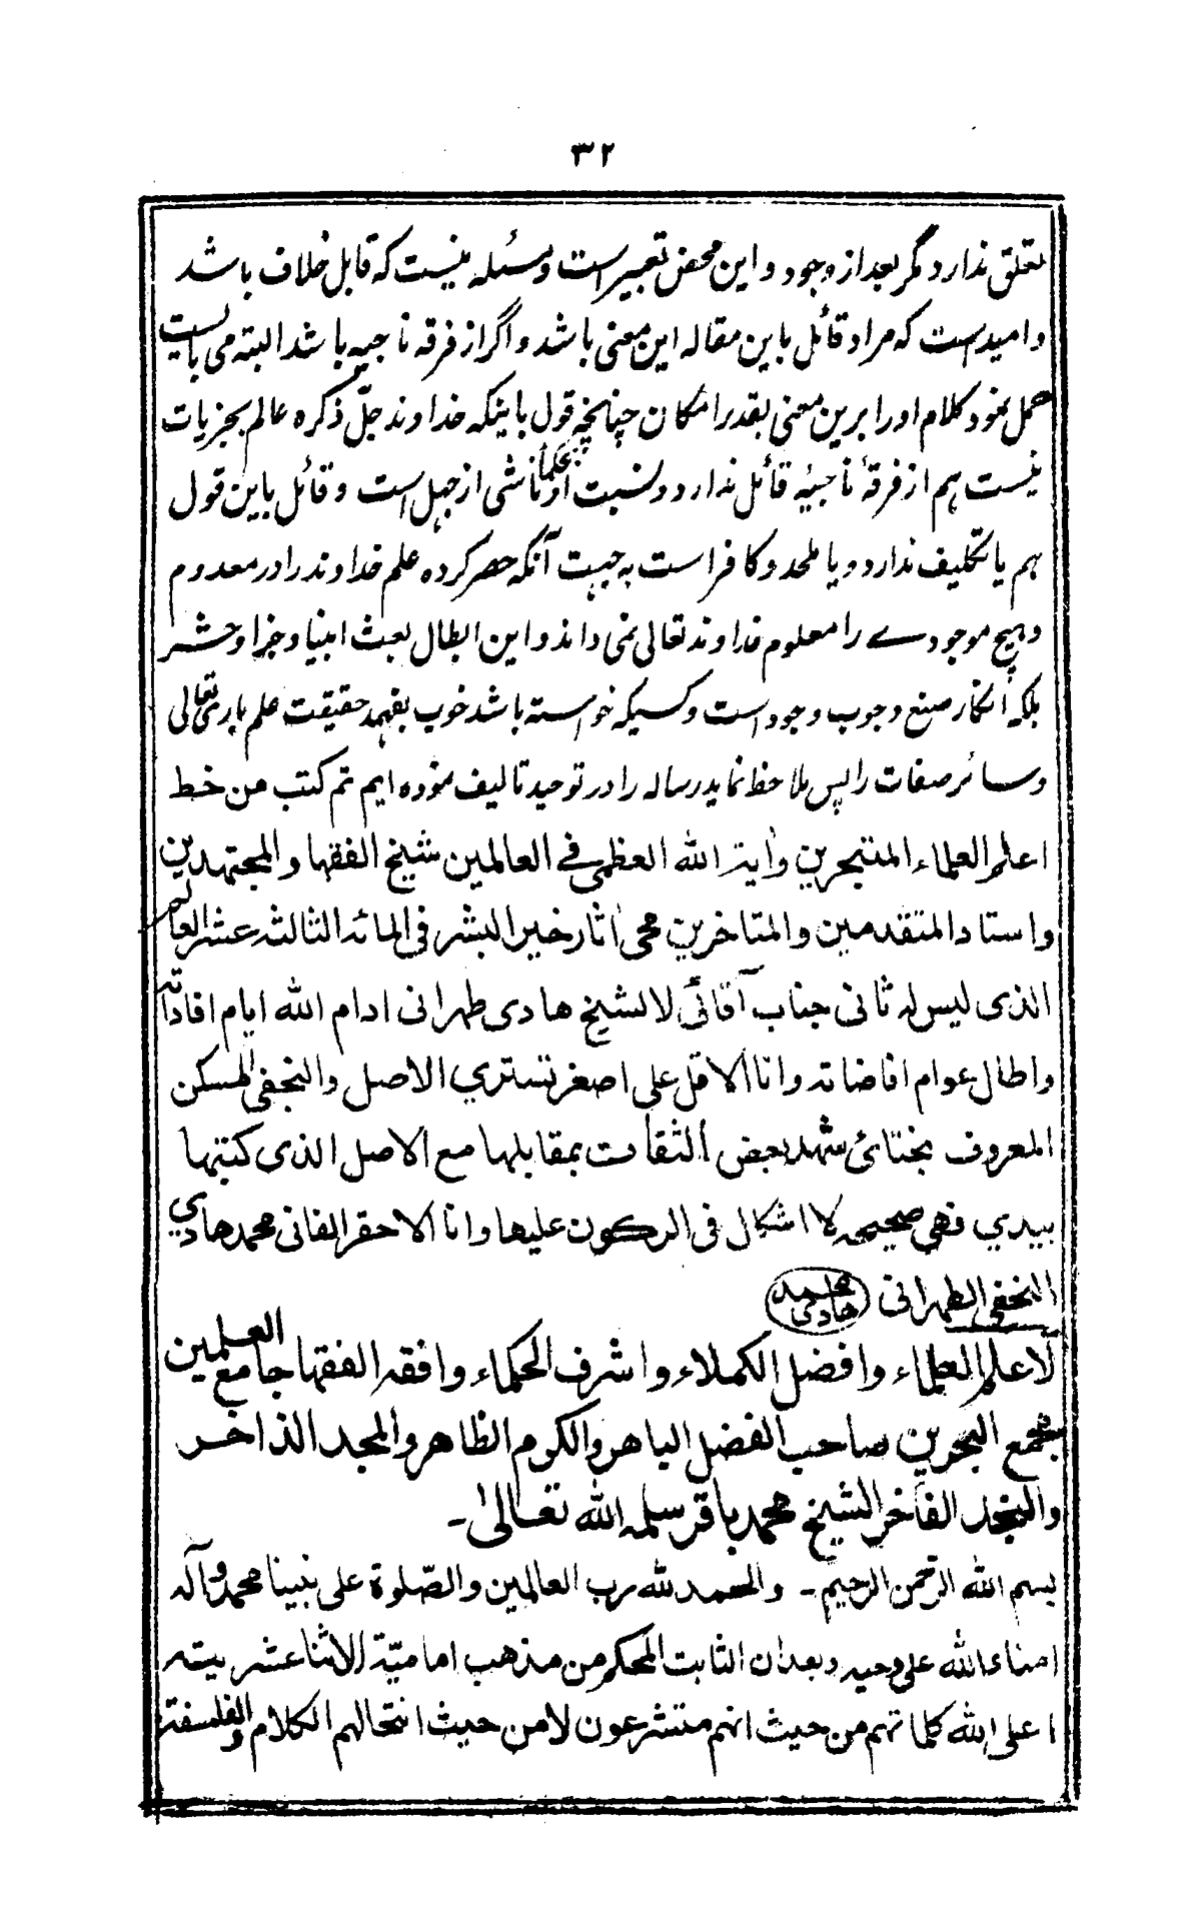 ٣٢
تعلق ندارد مگر بعد از وجود و این محض تعبیر است و مسئله نیست که قابل خلاف باشد
و امید است که مراد قائل باین مقاله این معنی باشد و اگر از فرقه ناجیه باشد البته می بایست
حمل نمود کلام او را برین معنی بقدر امکان چنانچه قول باینکه خداوند جلّ ذکره عالم بجزیات
نیست هم از فرقهٔ ناجیّه قائل ندارد و نسبت او بحکما ناشی از جهل است و قائل باین قول
هم یا تکلیف ندارد و یا ملحد و کافر است به جهت آنکه حصر کرده علم خداوند را در معدوم
و هیچ موجودے را معلوم خداوند تعالی نمی داند و این ابطال بعث انبیا و جزا و حشر
بلکه انکار صنع وجوب وجود است و کسیکه خواسته باشد خوب بفهمد حقیقت علم باری تعالی
و سائر صفات را پس ملاحظ نماید رساله را در توحید تالیف نموده ایم تم کتب من خط
اعلم العلماء المتبحرین وایة الله العظمی فے العالمین شیخ الفقها والمجتهدین
واستاد المتقدمین والمتاخرین محی اثار خیر البشر فی المائه الثالثه عشر العالم
الذی لیس له ثانی جناب آقائی لا الشیخ هادی طهرانی ادام الله ایام افاداته
واطال عوام افاضاته وانا الاقل علی اصغر تستري الاصل والنجفی المسکن
المعروف بختائی شهد بعض الثقات بمقابلها مع الاصل الذی کتبتها
بیدي فهی صحیحه لا اشکال فی الرکون علیها وانا الاحقر الفانی محمد هادي
النجفی الطهرانی محمد هادی
لاعلم العلماء وافضل الکملاء واشرف الحکماء وافقه الفقها جامع العلمین
مجمع البحرین صاحب الفضل الباهر والکرم الظاهر والمجد الذاخر
والنجد الفاخر الشیخ محمد باقر سلمه الله تعالیٰ۔
بسم الله الرحمن الرحیم۔ والحمد لله رب العالمین والصّلوة علی نبینا محمد وآله
امناء الله علی وحیه وبعد ان الثابت المحکم من مذهب امامیّة الاثنا عشریته
اعلی الله کلماتهم من حیث انهم متشرعون لا من حیث انتحالهم الکلام والفلسفة